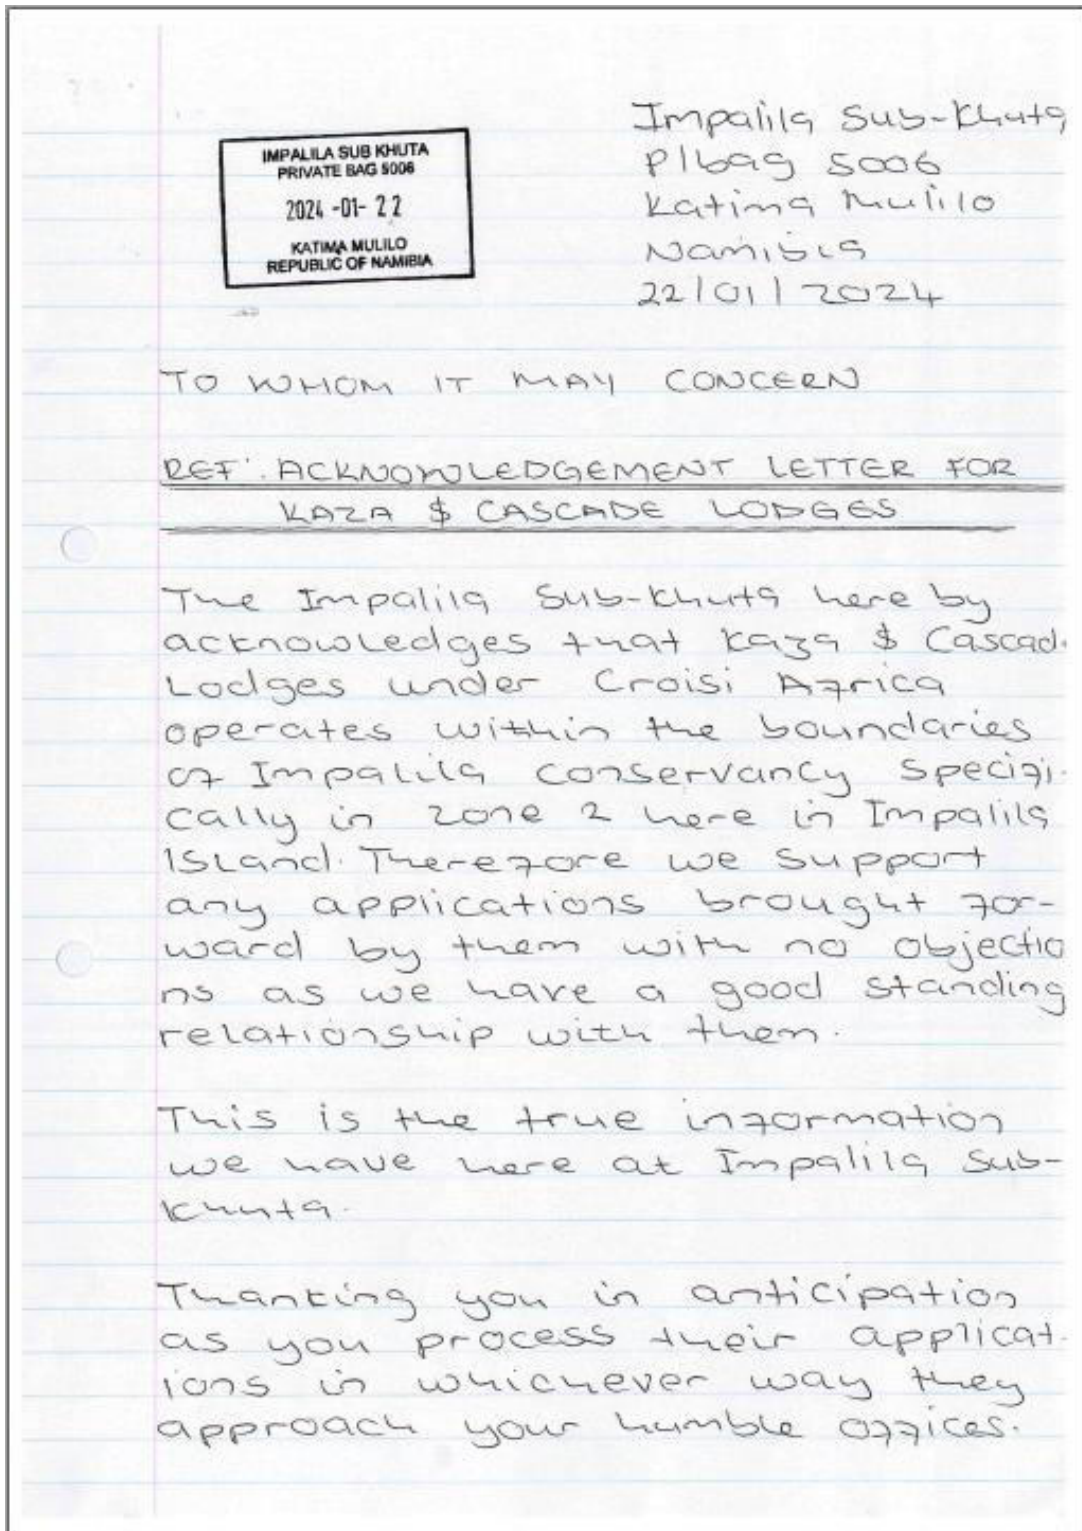 IMPALILA SUB KHUTA
PRIVATE BAG 5006
2024 -01- 22
KATIMA MULILO
REPUBLIC OF NAMIBIA
Impalila Sub-Khuta
P/bag 5006
Katima Mulilo
Namibia
22/01/2024
TO WHOM IT MAY CONCERN
REF: ACKNOWLEDGEMENT LETTER FOR
KAZA $ CASCADE LODGES
The Impalila Sub-Khuta here by
acknowledges that Kaza $ Cascad.
Lodges under Croisi Africa
operates within the boundaries
of Impalila Conservancy Specifi-
cally in zone 2 here in Impalila
Island. Therefore we support
any applications brought for-
ward by them with no objectio
ns as we have a good standing
relationship with them.
This is the true information
we have here at Impalila Sub-
Khuta.
Thanking you in anticipation
as you process their applicat-
ions in whichever way they
approach your humble offices.